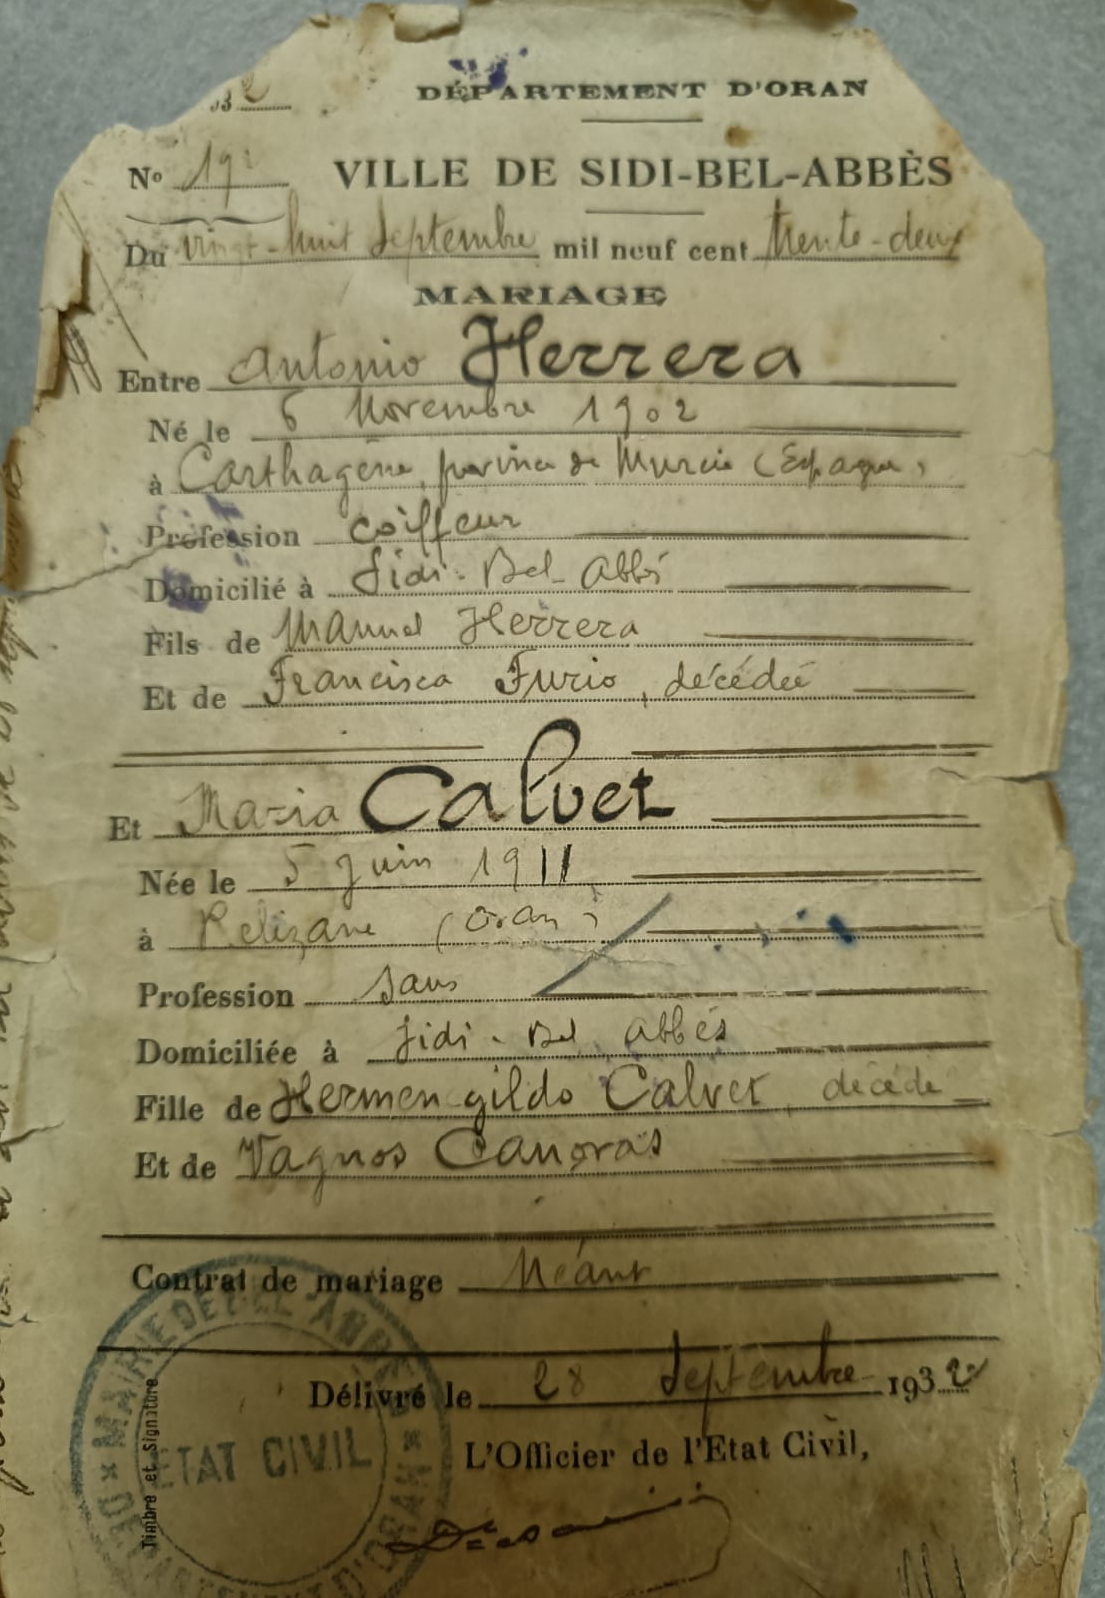 DÉPARTEMENT D'ORAN
VILLE DE SIDI-BEL-ABBÈS
Nº
Du vingt-huit Septembre mil neuf cent trente-deux
MARIAGE
Entre Antonio Herrera
Né le 6 Novembre 1902
à Carthagène, province de Murcie (Espagne)
Profession coiffeur
Domicilié à Sidi-Bel-Abbès
Fils de Manuel Herrera
Et de Francisca Furio, décédée
Et Maria Calvet
Née le 5 Juin 1911
à Relizane (Oran)
Profession sans
Domiciliée à Sidi-Bel Abbés
Fille de Hermengildo Calvet, décédé
Et de Vagnos Canovas
Contrat de mariage Néant
Délivré le 28 Septembre 1932
L'Officier de l'Etat Civil,
Timbre et Signature
MAIRIE DE BEL-ABBÈS
ETAT CIVIL
DÉPARTEMENT D'ORAN